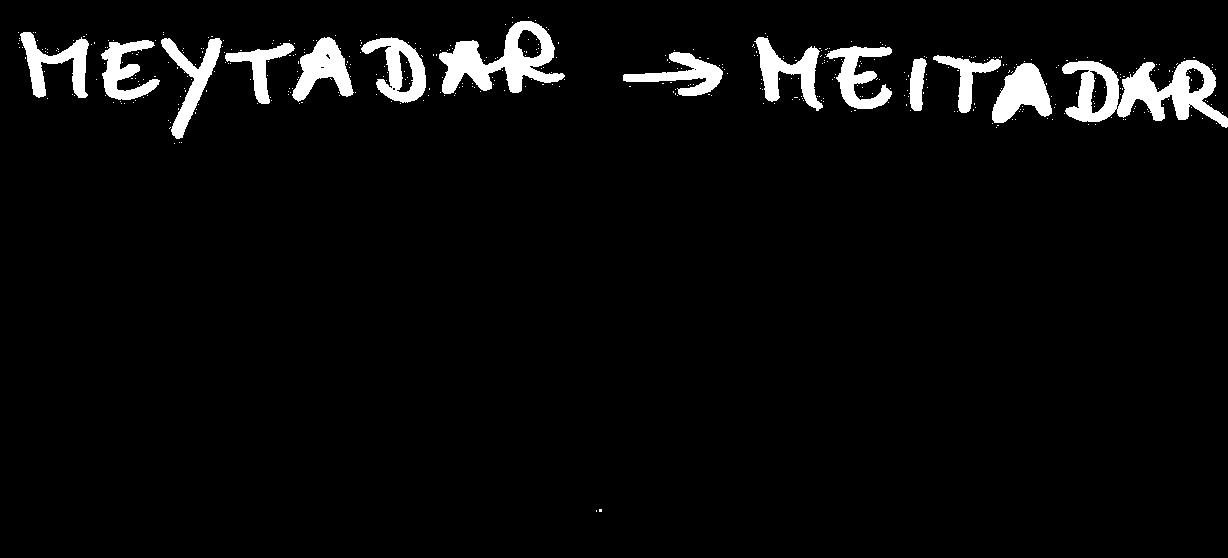 MEYTADAR → MEITADAR